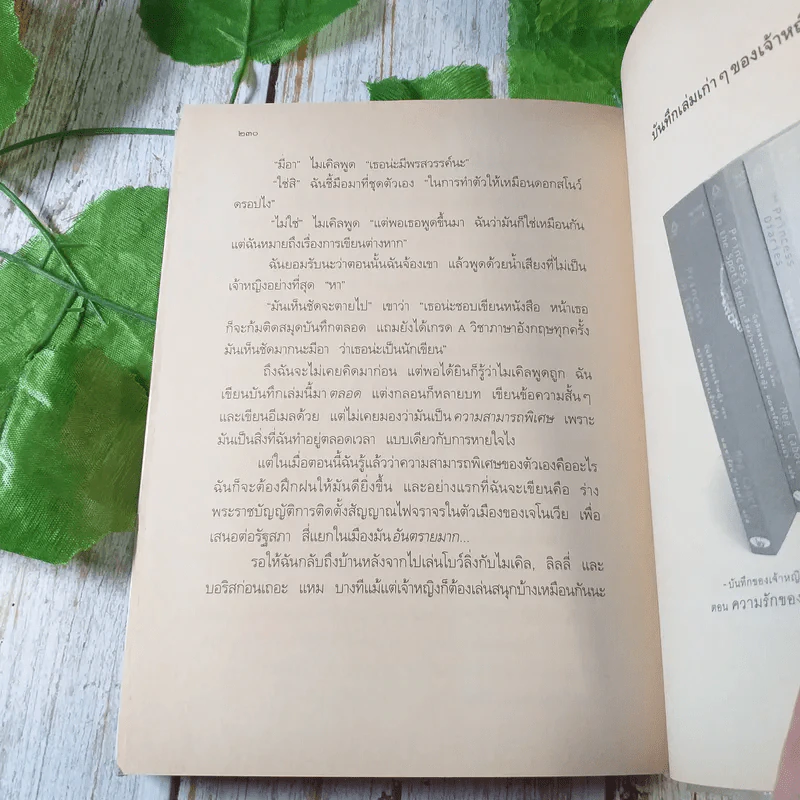 ๒๓๐
"มีอา" ไมเคิลพูด "เธอน่ะมีพรสวรรค์นะ"
"ใช่สิ" ฉันชี้มือมาที่ชุดตัวเอง "ในการทำตัวให้เหมือนดอกสโนว์
ดรอปไง"
"ไม่ใช่" ไมเคิลพูด "แต่พอเธอพูดขึ้นมา ฉันว่ามันก็ใช่เหมือนกัน
แต่ฉันหมายถึงเรื่องการเขียนต่างหาก"
ฉันยอมรับนะว่าตอนนั้นฉันจ้องเขา แล้วพูดด้วยน้ำเสียงที่ไม่เป็น
เจ้าหญิงอย่างที่สุด "หา"
"มันเห็นชัดจะตายไป" เขาว่า "เธอน่ะชอบเขียนหนังสือ หน้าเธอ
ก็จะก้มติดสมุดบันทึกตลอด แถมยังได้เกรด A วิชาภาษาอังกฤษทุกครั้ง
มันเห็นชัดมากนะมีอา ว่าเธอน่ะเป็นนักเขียน"
ถึงฉันจะไม่เคยคิดมาก่อน แต่พอได้ยินก็รู้ว่าไมเคิลพูดถูก ฉัน
เขียนบันทึกเล่มนี้มาตลอด แต่งกลอนก็หลายบท เขียนข้อความสั้นๆ
และเขียนอีเมลด้วย แต่ไม่เคยมองว่ามันเป็นความสามารถพิเศษ เพราะ
มันเป็นสิ่งที่ฉันทำอยู่ตลอดเวลา แบบเดียวกับการหายใจไง
แต่ในเมื่อตอนนี้ฉันรู้แล้วว่าความสามารถพิเศษของตัวเองคืออะไร
ฉันก็จะต้องฝึกฝนให้มันดียิ่งขึ้น และอย่างแรกที่ฉันจะเขียนคือ ร่าง
พระราชบัญญัติการติดตั้งสัญญาณไฟจราจรในตัวเมืองของเจโนเวีย เพื่อ
เสนอต่อรัฐสภา สี่แยกในเมืองมันอันตรายมาก...
รอให้ฉันกลับถึงบ้านหลังจากไปเล่นโบว์ลิ่งกับไมเคิล, ลิลลี่ และ
บอริสก่อนเถอะ แหม บางทีแม้แต่เจ้าหญิงก็ต้องเล่นสนุกบ้างเหมือนกันนะ
บันทึกเล่มเก่าๆ ของเจ้าหญิง
Princess
Princess
In the Spotlight
Princess
Diaries
Meg Cabot
-บันทึกของเจ้าหญิ
ตอน ความรักของ